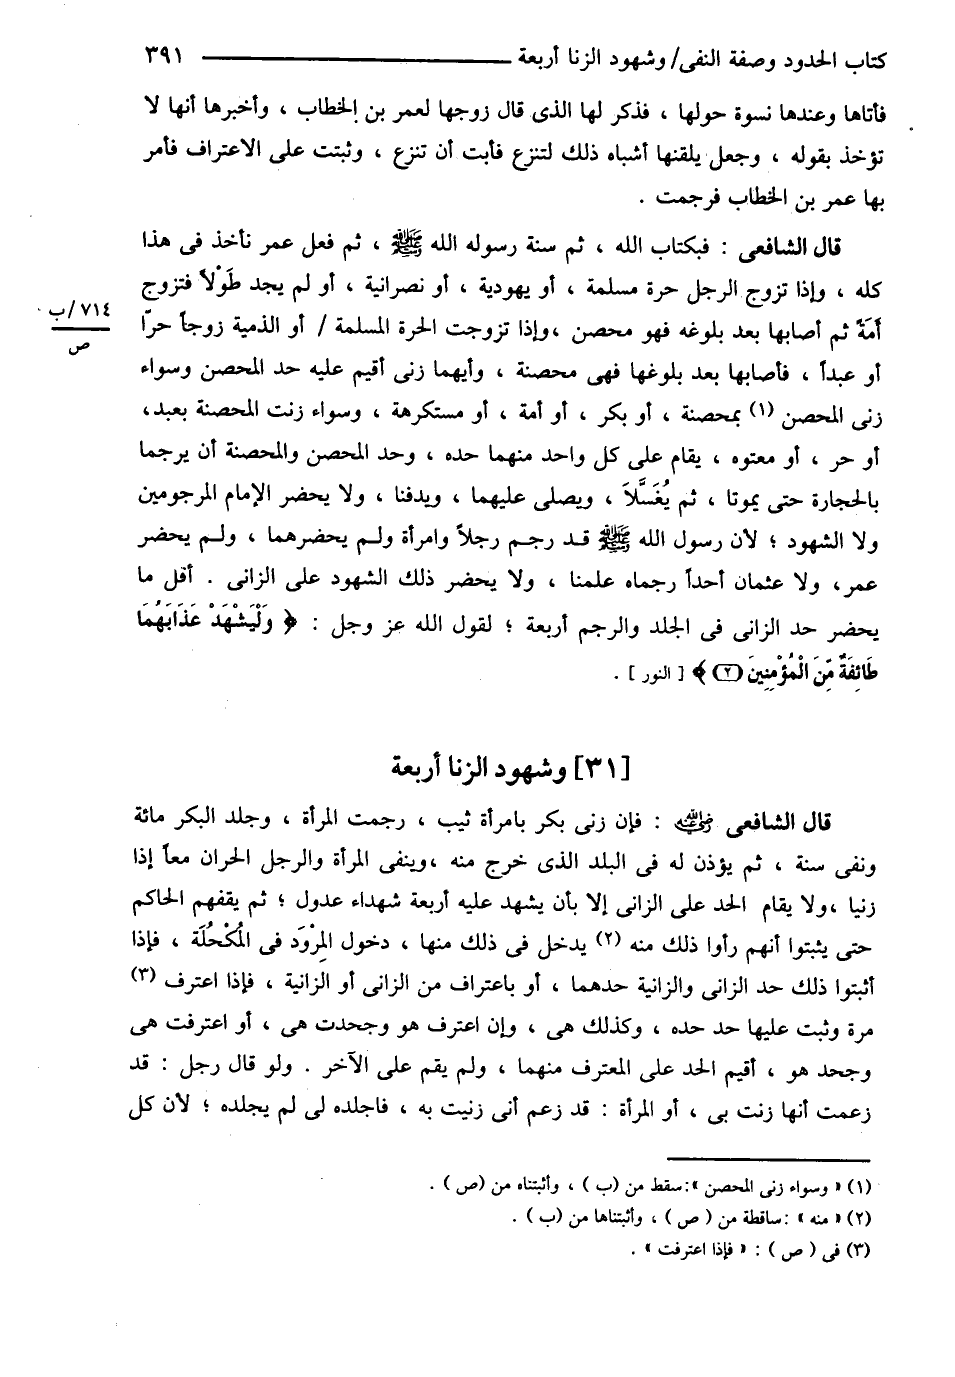 كتاب الحدود وصفة النفى/ وشهود الزنا أربعة ٣٩١
فأتاها وعندها نسوة حولها ، فذكر لها الذى قال زوجها لعمر بن الخطاب ، وأخبرها أنها لا
تؤخذ بقوله ، وجعل يلقنها أشباه ذلك لتنزع فأبت أن تنزع ، وثبتت على الاعتراف فأمر
بها عمر بن الخطاب فرجمت .
قال الشافعى : فبكتاب الله ، ثم سنة رسوله الله ﷺ ، ثم فعل عمر نأخذ فى هذا
كله ، وإذا تزوج الرجل حرة مسلمة ، أو يهودية ، أو نصرانية ، أو لم يجد طَوْلاً فتزوج
أَمَةً ثم أصابها بعد بلوغه فهو محصن ،وإذا تزوجت الحرة المسلمة / أو الذمية زوجاً حرّا
٧١٤/ب
ص
أو عبداً ، فأصابها بعد بلوغها فهى محصنة ، وأيهما زنى أقيم عليه حد المحصن وسواء
زنى المحصن (١) بمحصنة ، أو بكر ، أو أمة ، أو مستكرهة ، وسواء زنت المحصنة بعبد،
أو حر ، أو معتوه ، يقام على كل واحد منهما حده ، وحد المحصن والمحصنة أن يرجما
بالحجارة حتى يموتا ، ثم يُغَسَّلاَ ، ويصلى عليهما ، ويدفنا ، ولا يحضر الإمام المرجومين
ولا الشهود ؛ لأن رسول الله ﷺ قد رجم رجلاً وامرأة ولم يحضرهما ، ولم يحضر
عمر، ولا عثمان أحداً رجماه علمنا ، ولا يحضر ذلك الشهود على الزانى . أقل ما
يحضر حد الزانى فى الجلد والرجم أربعة ؛ لقول الله عز وجل : ﴿ وَلْيَشْهَدْ عَذَابَهُمَا
طَائِفَةٌ مِّنَ الْمُؤْمِنِينَ (٢) ﴾ [ النور ] .
[٣١] وشهود الزنا أربعة
قال الشافعى رضي الله عنه : فإن زنى بكر بامرأة ثيب ، رجمت المرأة ، وجلد البكر مائة
ونفى سنة ، ثم يؤذن له فى البلد الذى خرج منه ،وينفى المرأة والرجل الحران معاً إذا
زنيا ،ولا يقام الحد على الزانى إلا بأن يشهد عليه أربعة شهداء عدول ؛ ثم يقفهم الحاكم
حتى يثبتوا أنهم رأوا ذلك منه (٢) يدخل فى ذلك منها ، دخول المِرْوَد فى المُكْحُلَة ، فإذا
أثبتوا ذلك حد الزانى والزانية حدهما ، أو باعتراف من الزانى أو الزانية ، فإذا اعترف (٣)
مرة وثبت عليها حد حده ، وكذلك هى ، وإن اعترف هو وجحدت هى ، أو اعترفت هى
وجحد هو ، أقيم الحد على المعترف منهما ، ولم يقم على الآخر . ولو قال رجل : قد
زعمت أنها زنت بى ، أو المرأة : قد زعم أنى زنيت به ، فاجلده لى لم يجلده ؛ لأن كل
(١) « وسواء زنى المحصن »:سقط من (ب ) ، وأثبتناه من (ص ) .
(٢) « منه » :ساقطة من ( ص ) ، وأثبتناها من (ب ) .
(٣) فى ( ص ) : « فإذا اعترفت » .